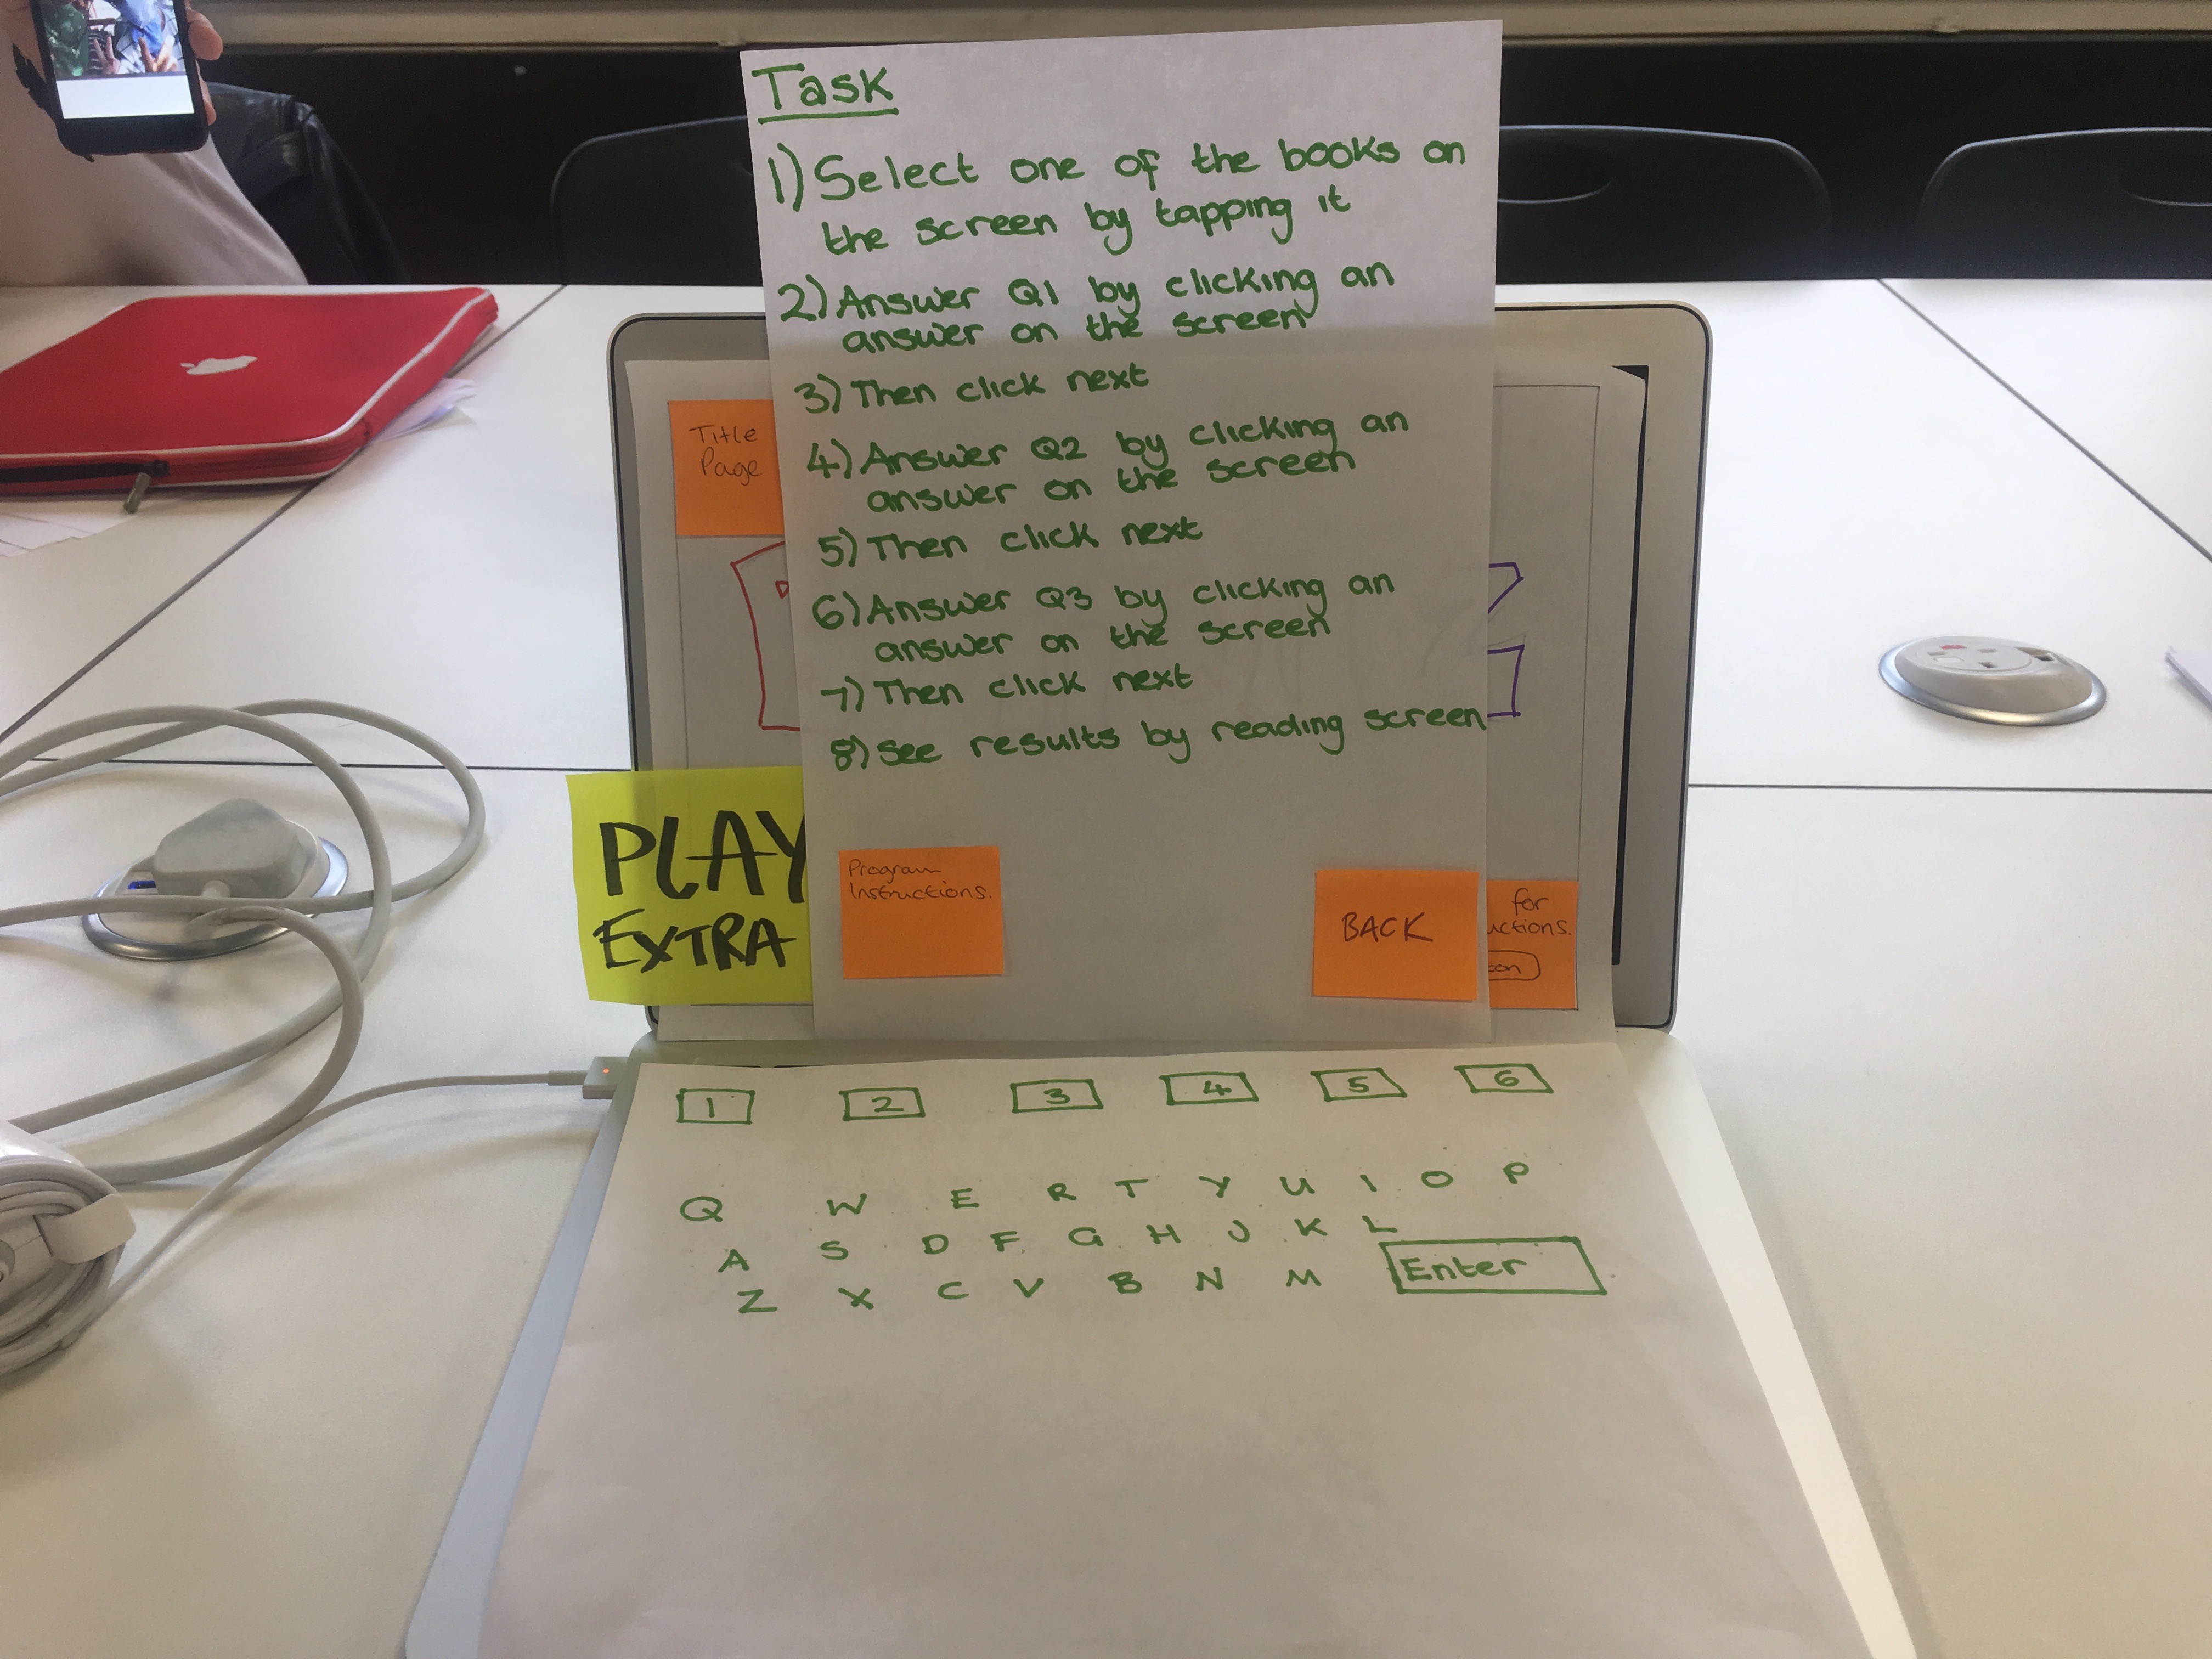 Task
1) Select one of the books on
the screen by tapping it
2) Answer Q1 by clicking an
answer on the screen
3) Then click next
4) Answer Q2 by clicking an
answer on the screen
5) Then click next
6) Answer Q3 by clicking an
answer on the screen
7) Then click next
8) See results by reading screen
Title
Page
PLAY
EXTRA
Program
Instructions.
BACK
for
uctions.
1 2 3 4 5 6
Q W E R T Y U I O P
A S D F G H J K L
Z X C V B N M Enter